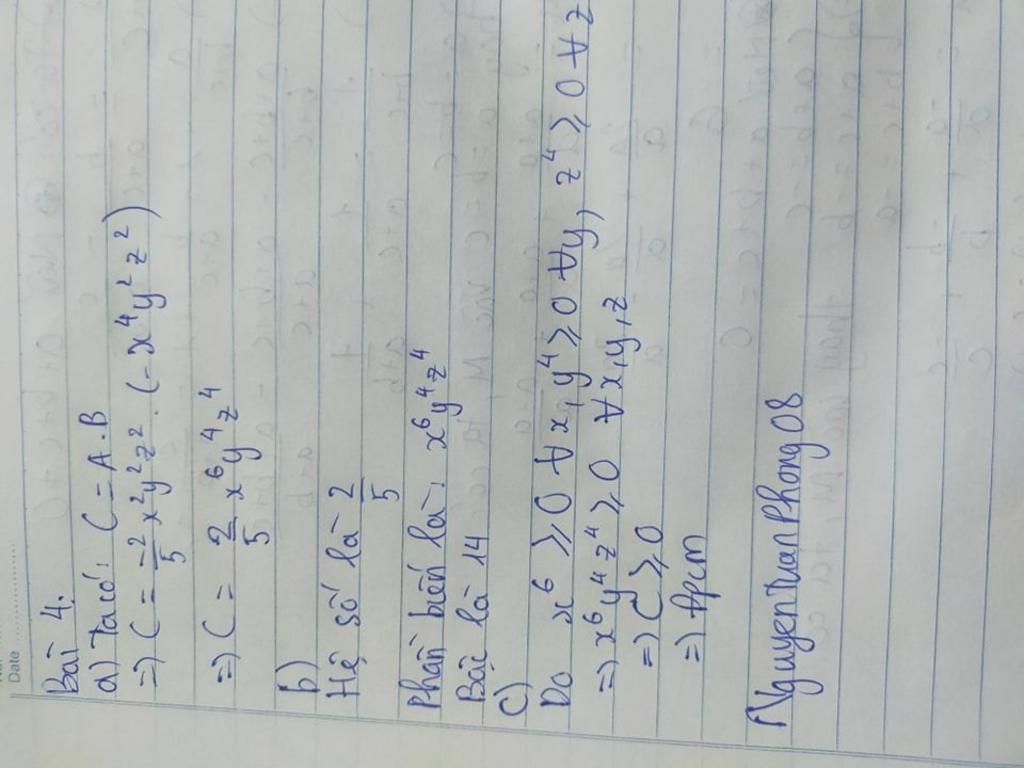 Date
Bài 4.
a) Ta có: C = A.B
=) C = -2/5 x²y²z² . (-x⁴y²z²)
=) C = 2/5 x⁶y⁴z⁴
b)
Hệ số là 2/5
Phần biến là: x⁶y⁴z⁴
Bậc là 14
c)
Do x⁶ ≥ 0 ∀x, y⁴ ≥ 0 ∀y, z⁴ ≥ 0 ∀z
=) x⁶y⁴z⁴ ≥ 0 ∀x,y,z
=) C ≥ 0
=) đpcm
NguyenTuanPhong08